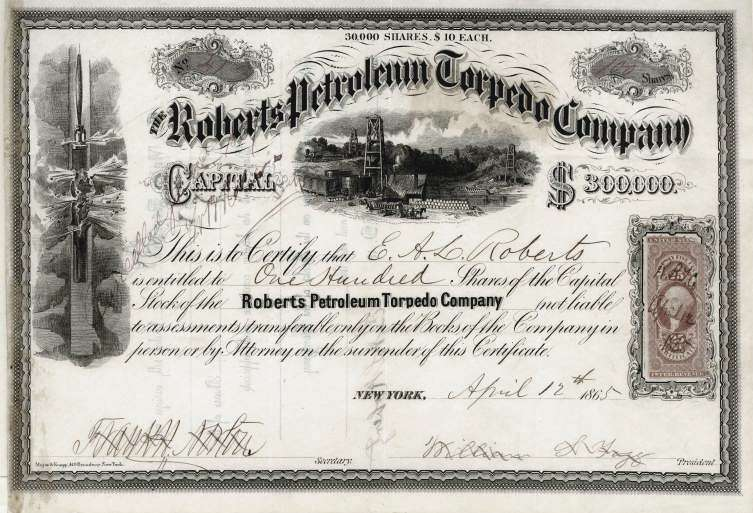 30,000 SHARES. $10 EACH.
No.
100 Shares
THE Roberts Petroleum Torpedo Company
CAPITAL $300,000.
This is to Certify that E. A. L. Roberts
is entitled to One Hundred Shares of the Capital
Stock of the Roberts Petroleum Torpedo Company not liable
to assessments transferable only on the Books of the Company in
person or by Attorney on the surrender of this Certificate.
NEW YORK, April 12th 1865
William
Secretary. President
Major & Knapp, 449 Broadway, New York.
UNITED STATES
INTER. REVENUE